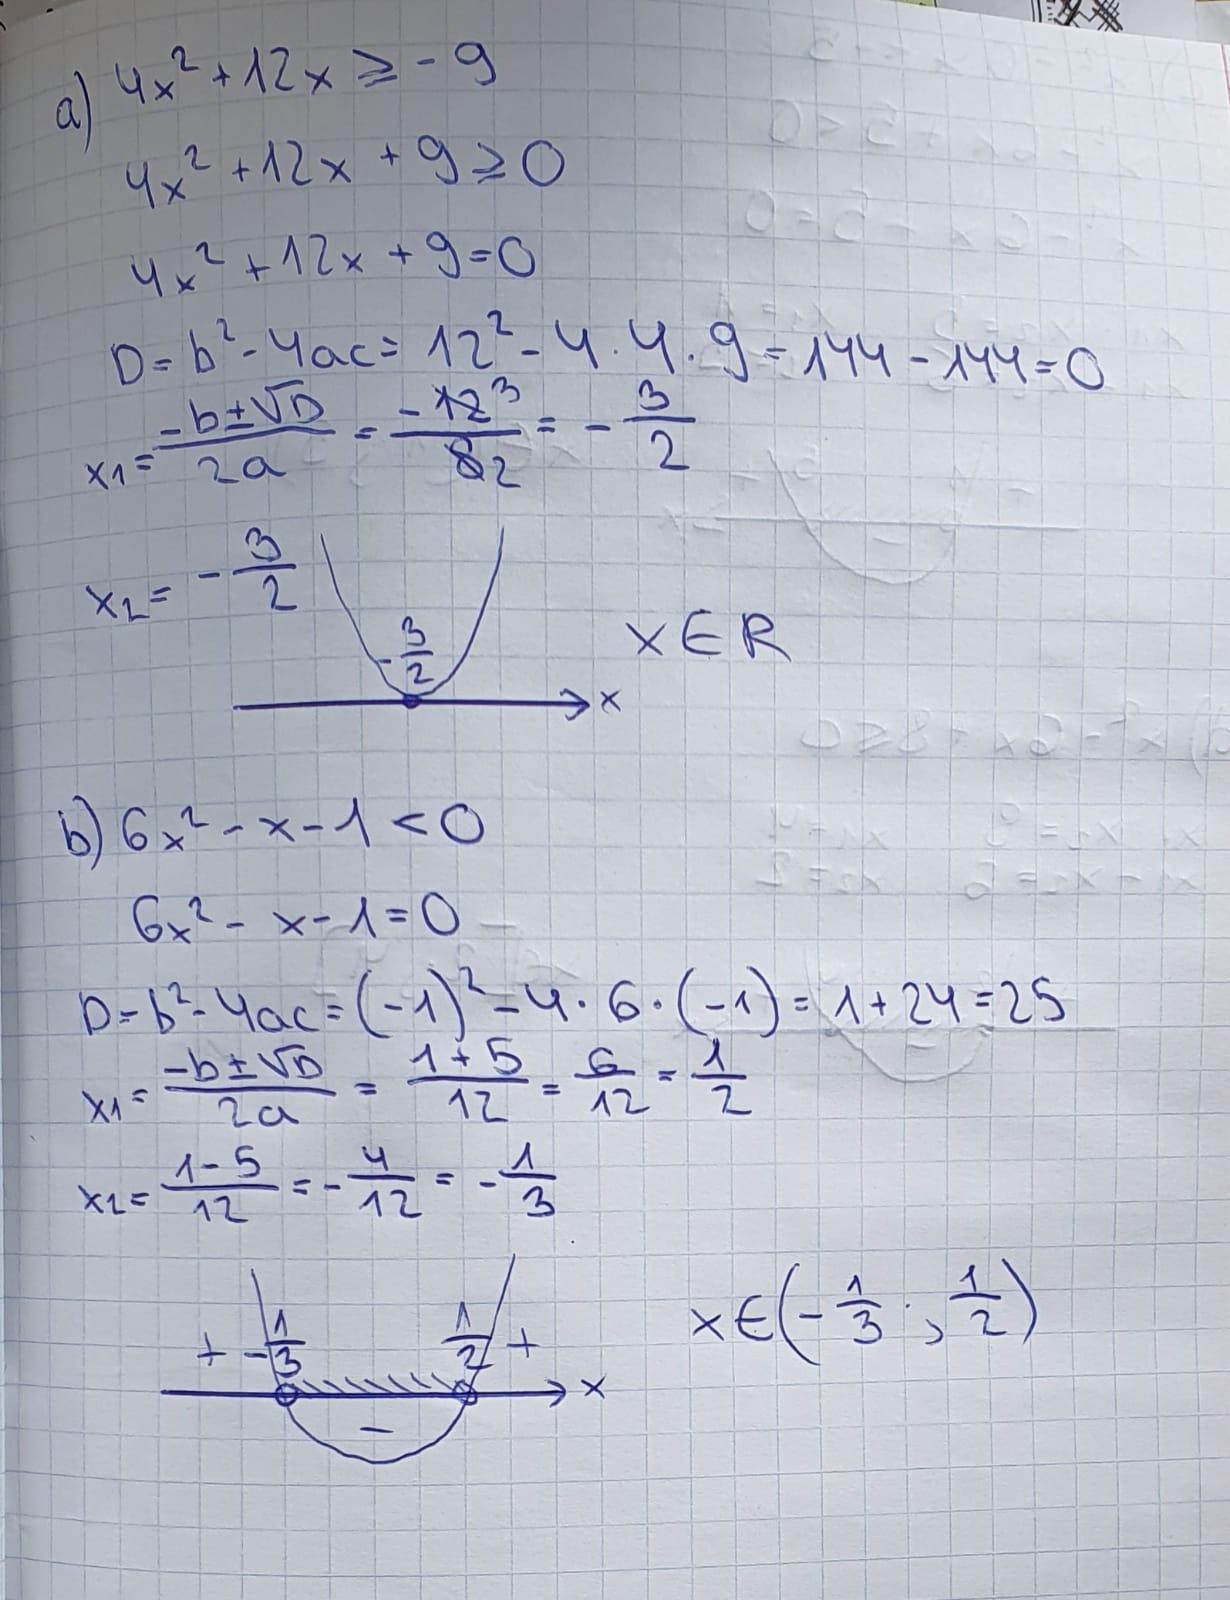 a) 4x² + 12x ≥ - 9
4x² + 12x + 9 ≥ 0
4x² + 12x + 9 = 0
D = b² - 4ac = 12² - 4 · 4 · 9 = 144 - 144 = 0
x1 = (-b ± √D)/(2a) = (-12 3)/(8 2) = - 3/2
x2 = - 3/2
- 3/2
x
x ∈ R
b) 6x² - x - 1 < 0
6x² - x - 1 = 0
D = b² - 4ac = (-1)² - 4 · 6 · (-1) = 1 + 24 = 25
x1 = (-b ± √D)/(2a) = (1 + 5)/12 = 6/12 = 1/2
x2 = (1 - 5)/12 = - 4/12 = - 1/3
+ - 1/3 1/2 +
x
-
x ∈ (- 1/3 ; 1/2)